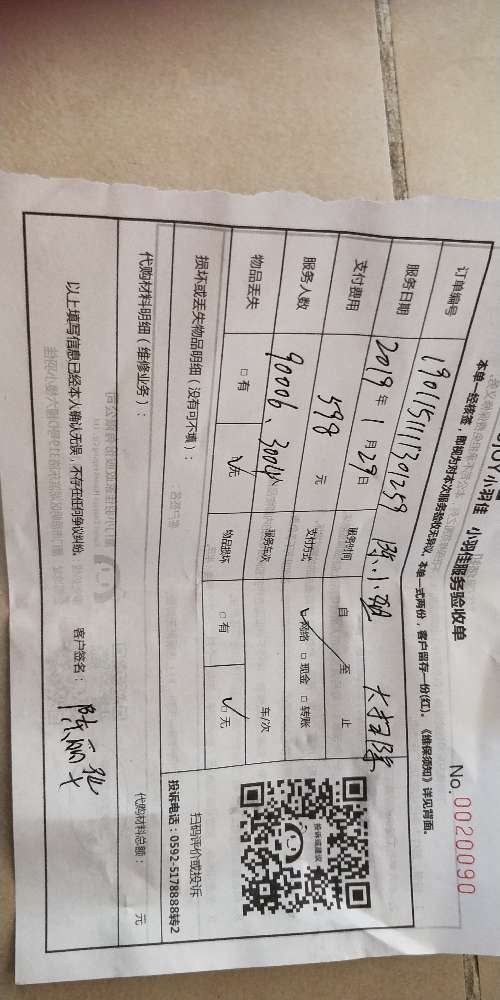 小羽佳 小羽佳服务验收单
No. 0020090
本单一经核签，即视为对本次服务验收无异议。本单一式两份，客户留存一份(红)。《维保须知》详见背面。
订单编号 190115111301259 陈小姐 大扫除
服务日期 2019 年 1 月 29 日 服务时间 自 至 止
支付费用 598 元 支付方式 ☑网络 □现金 □转账
服务人数 90006、3004 服务车次 车/次
物品丢失 □有 ☑无 物品损坏 □有 ☑无
损坏或丢失物品明细（没有可不填）：
投诉或建议
扫码评价或投诉
投诉电话：0592-5178888转2
代购材料明细（维修业务）： 代购材料总额： 元
以上填写信息已经本人确认无误，不存在任何争议纠纷。 客户签名：